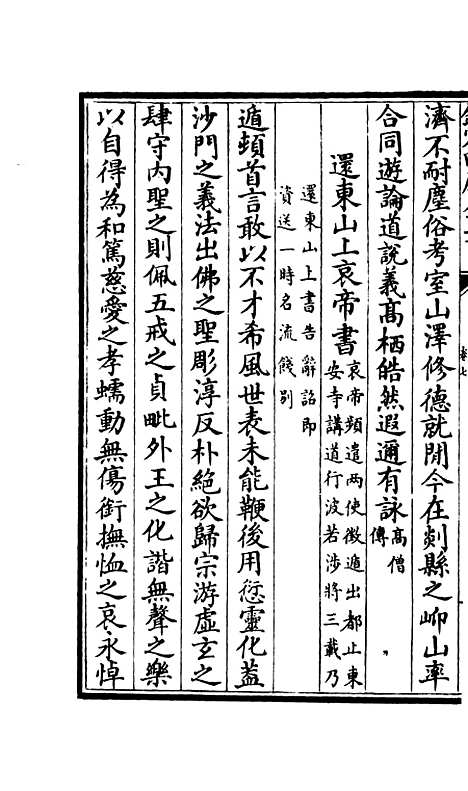 濟不耐塵俗考室山澤修德就閒今在剡縣之岇山率
合同遊論道說義髙栖皓然遐邇有詠髙僧傳
還東山上哀帝書哀帝頻遣兩使徴遁出都止東安寺講道行波若涉將三載乃
還東山上書告辭詔即資送一時名流餞别
遁頓首言敢以不才希風世表未能鞭後用愆靈化葢
沙門之義法出佛之聖彫淳反朴絶欲歸宗游虚玄之
肆守内聖之則佩五戒之貞毗外王之化諧無聲之樂
以自得為和篤慈愛之孝蠕動無傷銜撫恤之哀永悼